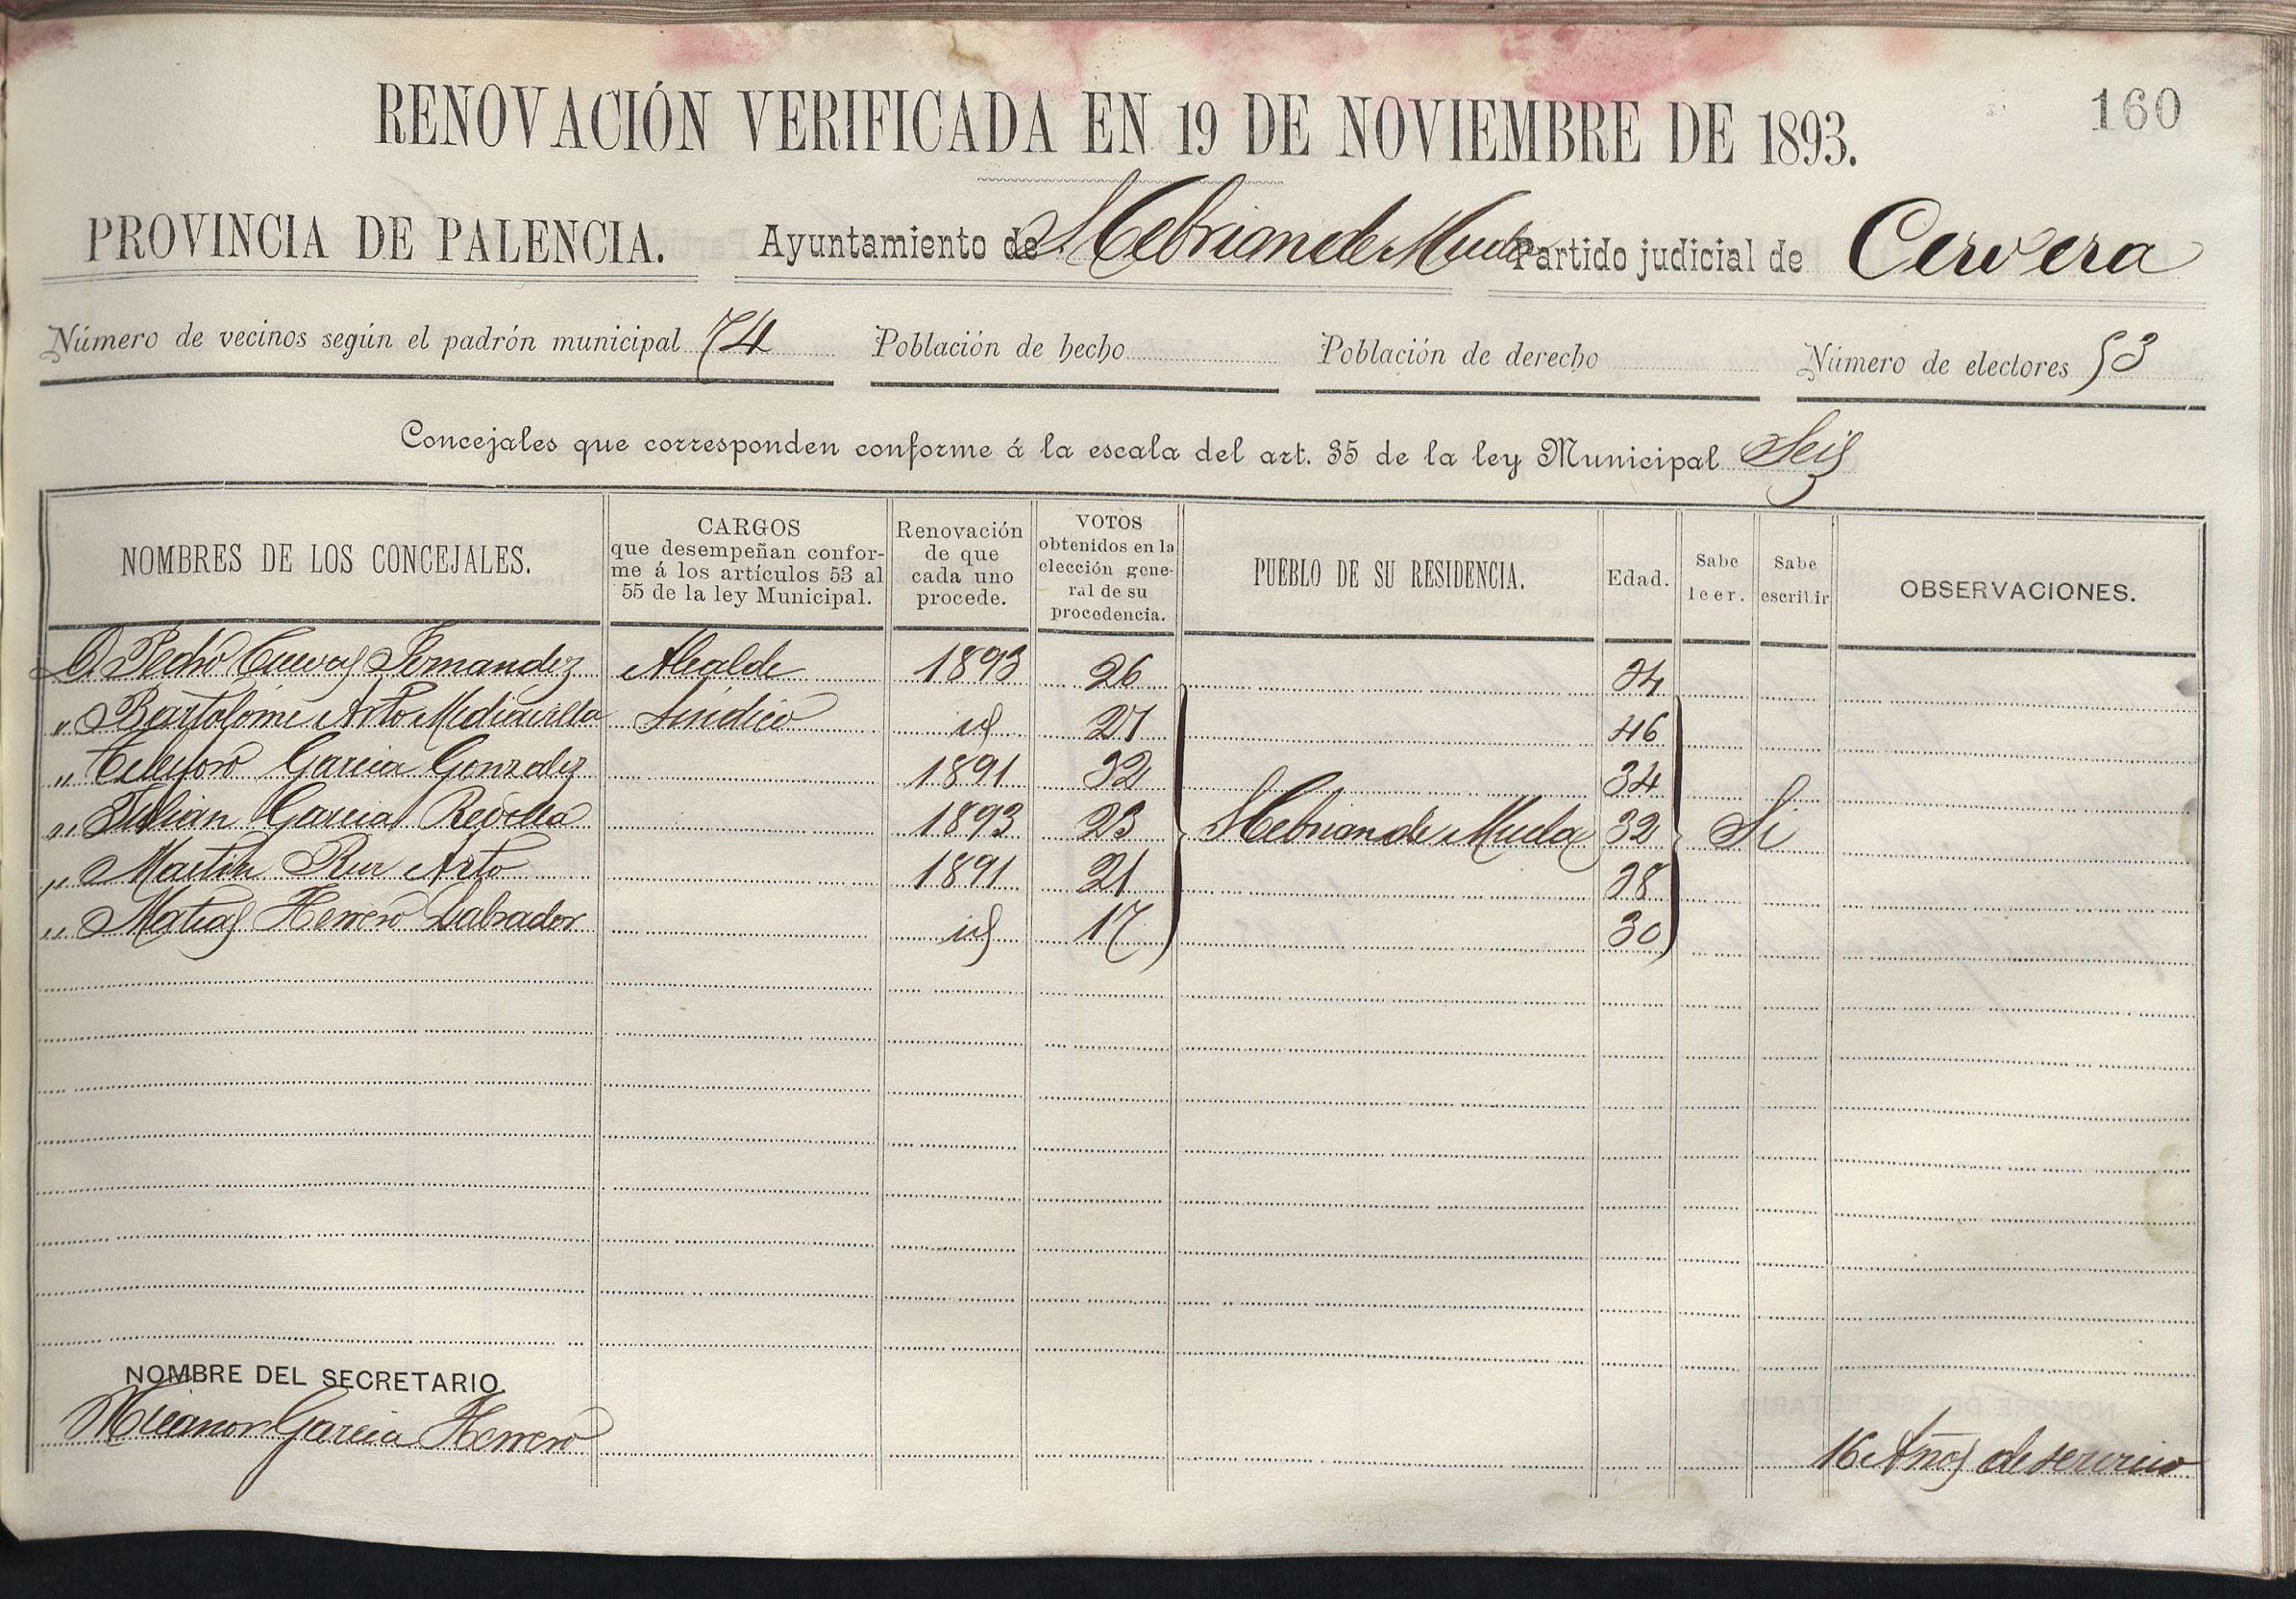 160
RENOVACIÓN VERIFICADA EN 19 DE NOVIEMBRE DE 1893.
PROVINCIA DE PALENCIA. Ayuntamiento de S. Cebrian de Muda Partido judicial de Cervera
Número de vecinos según el padrón municipal 74 Población de hecho Población de derecho Número de electores 53
Concejales que corresponden conforme á la escala del art. 35 de la ley Municipal Seis
NOMBRES DE LOS CONCEJALES. CARGOS que desempeñan confor- Renovación de que cada uno procede. VOTOS obtenidos en la PUEBLO DE SU RESIDENCIA. Edad. Sabe leer. Sabe escribir OBSERVACIONES.
me á los artículos 53 al elección gene-
55 de la ley Municipal. ral de su
procedencia.
D Pedro Cuevas Fernandez Alcalde 1893 26
" Bartolomé Arto Mediavilla Sindico id 27 46
" Telesforo Garcia Gonzalez 1891 32 34
" Julian Garcia Revilla 1893 23 S Cebrian de Muda 32 Si
" Martin Arto 1891 21
" Matias Herrero Labrador id 17 30
NOMBRE DEL SECRETARIO
Nicanor Garcia Herrero 16 Años de servicio